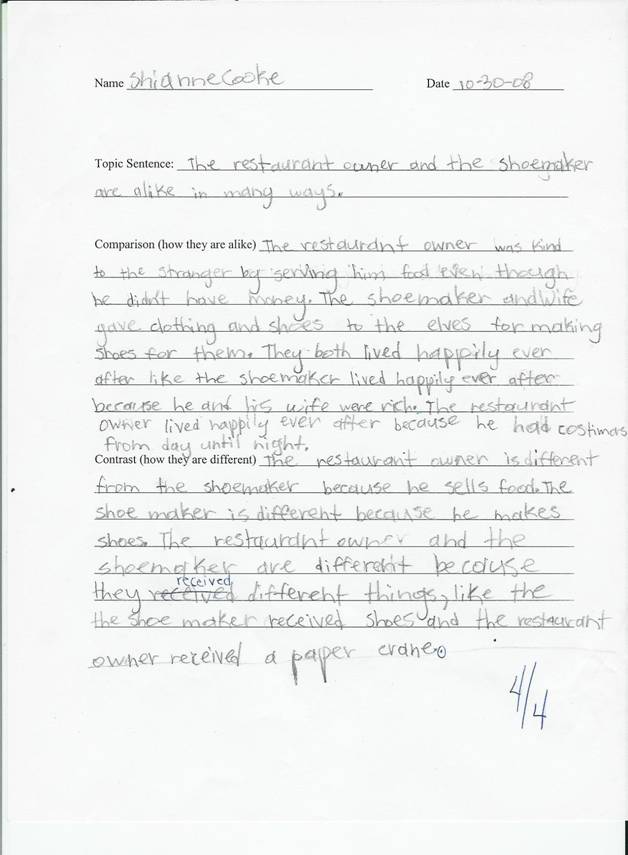 Name Shianne Cooke Date 10-30-08
Topic Sentence: The restaurant owner and the shoemaker
are alike in many ways.
Comparison (how they are alike) The restaurant owner was kind
to the stranger by serving him food even though
he didn't have money. The shoemaker and wife
gave clothing and shoes to the elves for making
shoes for them. They both lived happily ever
after like the shoemaker lived happily ever after
because he and his wife were rich. The restaurant
owner lived happily ever after because he had costimars
from day until night.
Contrast (how they are different) The restaurant owner is different
from the shoemaker because he sells food. The
shoe maker is different because he makes
shoes. The restaurant owner and the
shoemaker are different because
received
they received different things, like the
the shoe maker received shoes and the restaurant
owner received a paper crane.
4/4